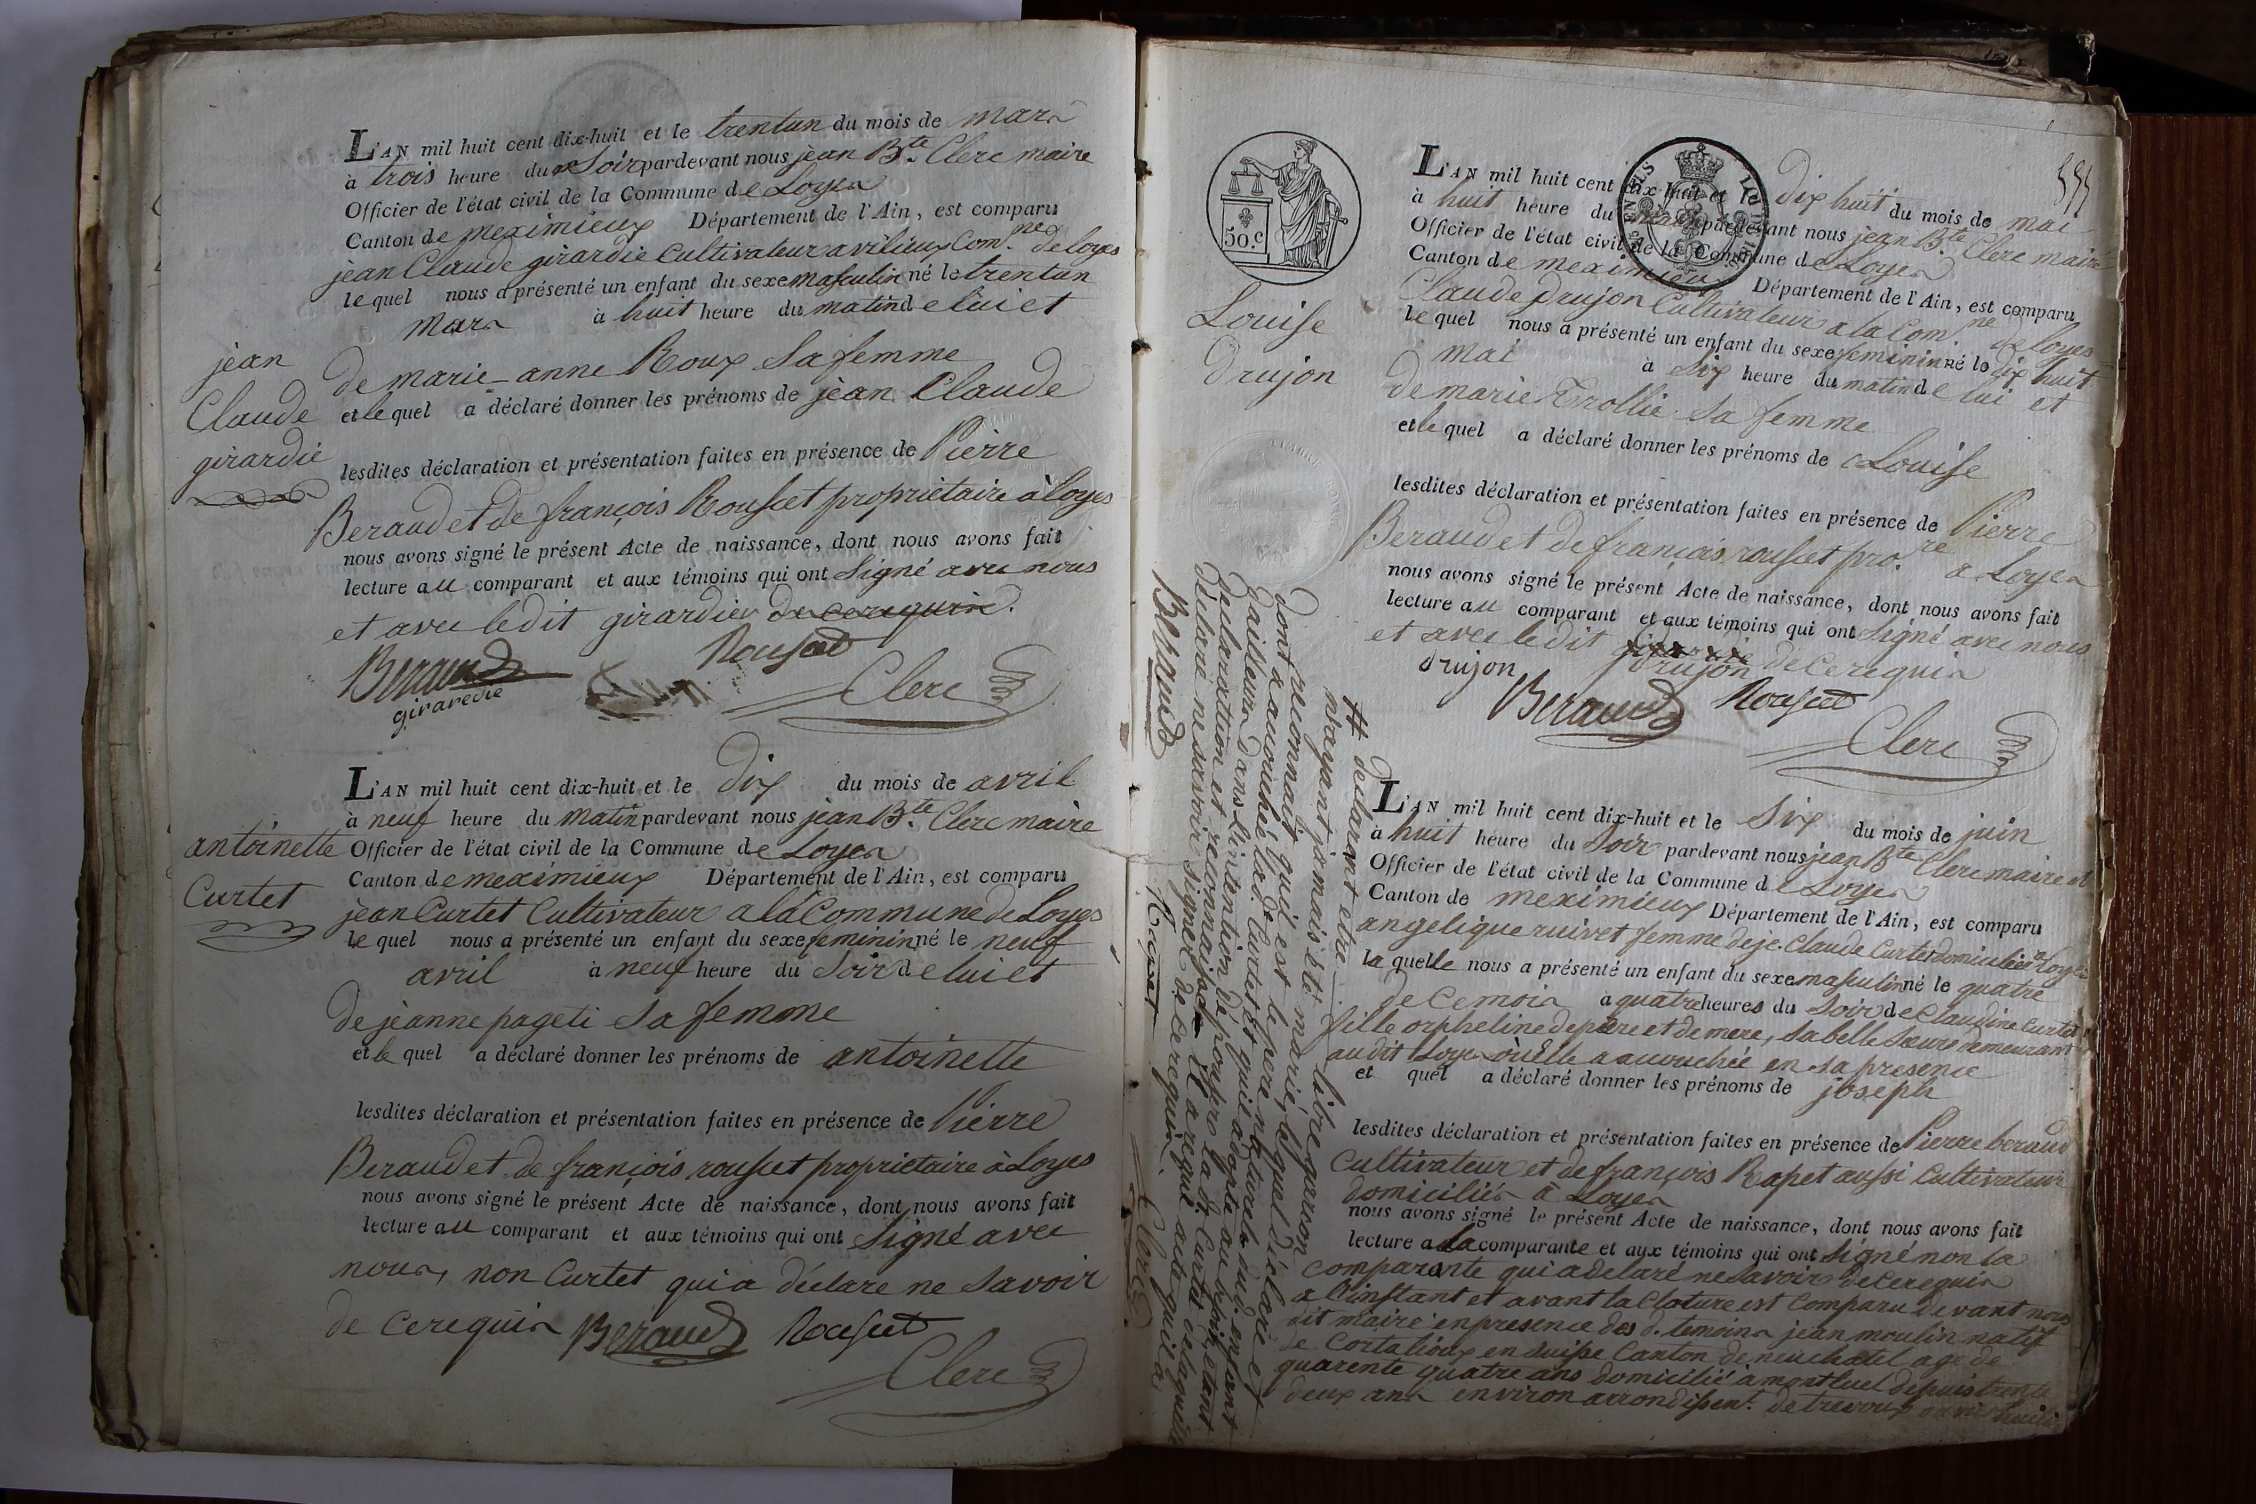 L'AN mil huit cent dix-huit et le trentun du mois de mars
à trois heure du Soir pardevant nous jean Bte. Clerc maire
Officier de l'état civil de la Commune de Loyes
Canton de meximieux Département de l'Ain, est comparu
jean Claude girardie Cultivateur a vilieux Comne. de loyes
le quel nous a présenté un enfant du sexe masculin né le trentun
mars à huit heure du matin de lui et
de marie-anne Roux sa femme
et le quel a déclaré donner les prénoms de jean Claude
lesdites déclaration et présentation faites en présence de Pierre
Beraud et de françois Rousset propriétaire à Loyes
nous avons signé le présent Acte de naissance, dont nous avons fait
lecture au comparant et aux témoins qui ont Signé avec nous
et avec ledit girardier de cerequis.
Beraud Rousset
girardie Clerc
jean
Claude
girardie
L'AN mil huit cent dix-huit et le dix du mois de avril
à neuf heure du matin pardevant nous jean Bte. Clerc maire
Officier de l'état civil de la Commune de Loyes
Canton de meximieux Département de l'Ain, est comparu
jean Curtet Cultivateur a la Commune de Loyes
le quel nous a présenté un enfant du sexe feminin né le neuf
avril à neuf heure du Soir de lui et
de jeanne pageti sa femme
et le quel a déclaré donner les prénoms de antoinette
lesdites déclaration et présentation faites en présence de Pierre
Beraud et de françois rousset propriétaire à Loyes
nous avons signé le présent Acte de naissance, dont nous avons fait
lecture au comparant et aux témoins qui ont Signé avec
nous, non Curtet qui a déclaré ne savoir
de cerequis Beraud Rousset
Clerc
antoinette
Curtet
50.c
L'AN mil huit cent dix-huit et le dix huit du mois de mai
à huit heure du matin pardevant nous jean Bte. Clerc maire
Officier de l'état civil de la Commune de Loyes
Canton de meximieux Département de l'Ain, est comparu
Claude drujon Cultivateur a la Comne. de loyes
le quel nous a présenté un enfant du sexe feminin né le dix huit
mai à Six heure du matin de lui et
de marie Trollie sa femme
et le quel a déclaré donner les prénoms de Louise
lesdites déclaration et présentation faites en présence de Pierre
Beraud et de françois rousset pro.re a Loyes
nous avons signé le présent Acte de naissance, dont nous avons fait
lecture au comparant et aux témoins qui ont Signé avec nous
et avec le dit drujon de cerequis
drujon Beraud Rousset
Clerc
Louise
drujon
L'AN mil huit cent dix-huit et le Six du mois de juin
à huit heure du Soir pardevant nous jean Bte Clerc maire et
Officier de l'état civil de la Commune de Loyes
Canton de meximieux Département de l'Ain, est comparu
angelique ruivet femme de je. Claude Curtet domiciliée a Loyes
la quelle nous a présenté un enfant du sexe masculin né le quatre
de ce mois à quatre heures du Soir de Claudine Curtet
fille orpheline de pere et de mere, sa belle Sœur demeurant
au dit Loyes où Elle a accouchée en sa presence
et quel a déclaré donner les prénoms de joseph
lesdites déclaration et présentation faites en présence de Pierre beraud
Cultivateur et de françois Rapet aussi Cultivateur
domiciliés à Loyes
nous avons signé le présent Acte de naissance, dont nous avons fait
lecture a La comparante et aux témoins qui ont signé non la
comparente qui a declaré ne savoir de cerequis
a l'instant et avant la cloture est Comparu devant nous
dit maire en presence des d. temoins jean moulin natif
de Cortalioux en Suisse Canton de neuchatel age de
quarente quatre ans domicilié a montluel depuis trente
deux ans environ arrondissent. de trevoux
# declarant etre libre garcon
n'ayant jamais été marié, lequel déclare et
reconnait qu'il est le pere naturel dud. enfant
dont a accouchée lad. Curtet et qu'il adopte
d'ailleurs dans l'intention d'epouser lad. Curtet
declaration et reconnaissance
declaré ne savoir signer de ce requis.
Beraud Rapet Clerc